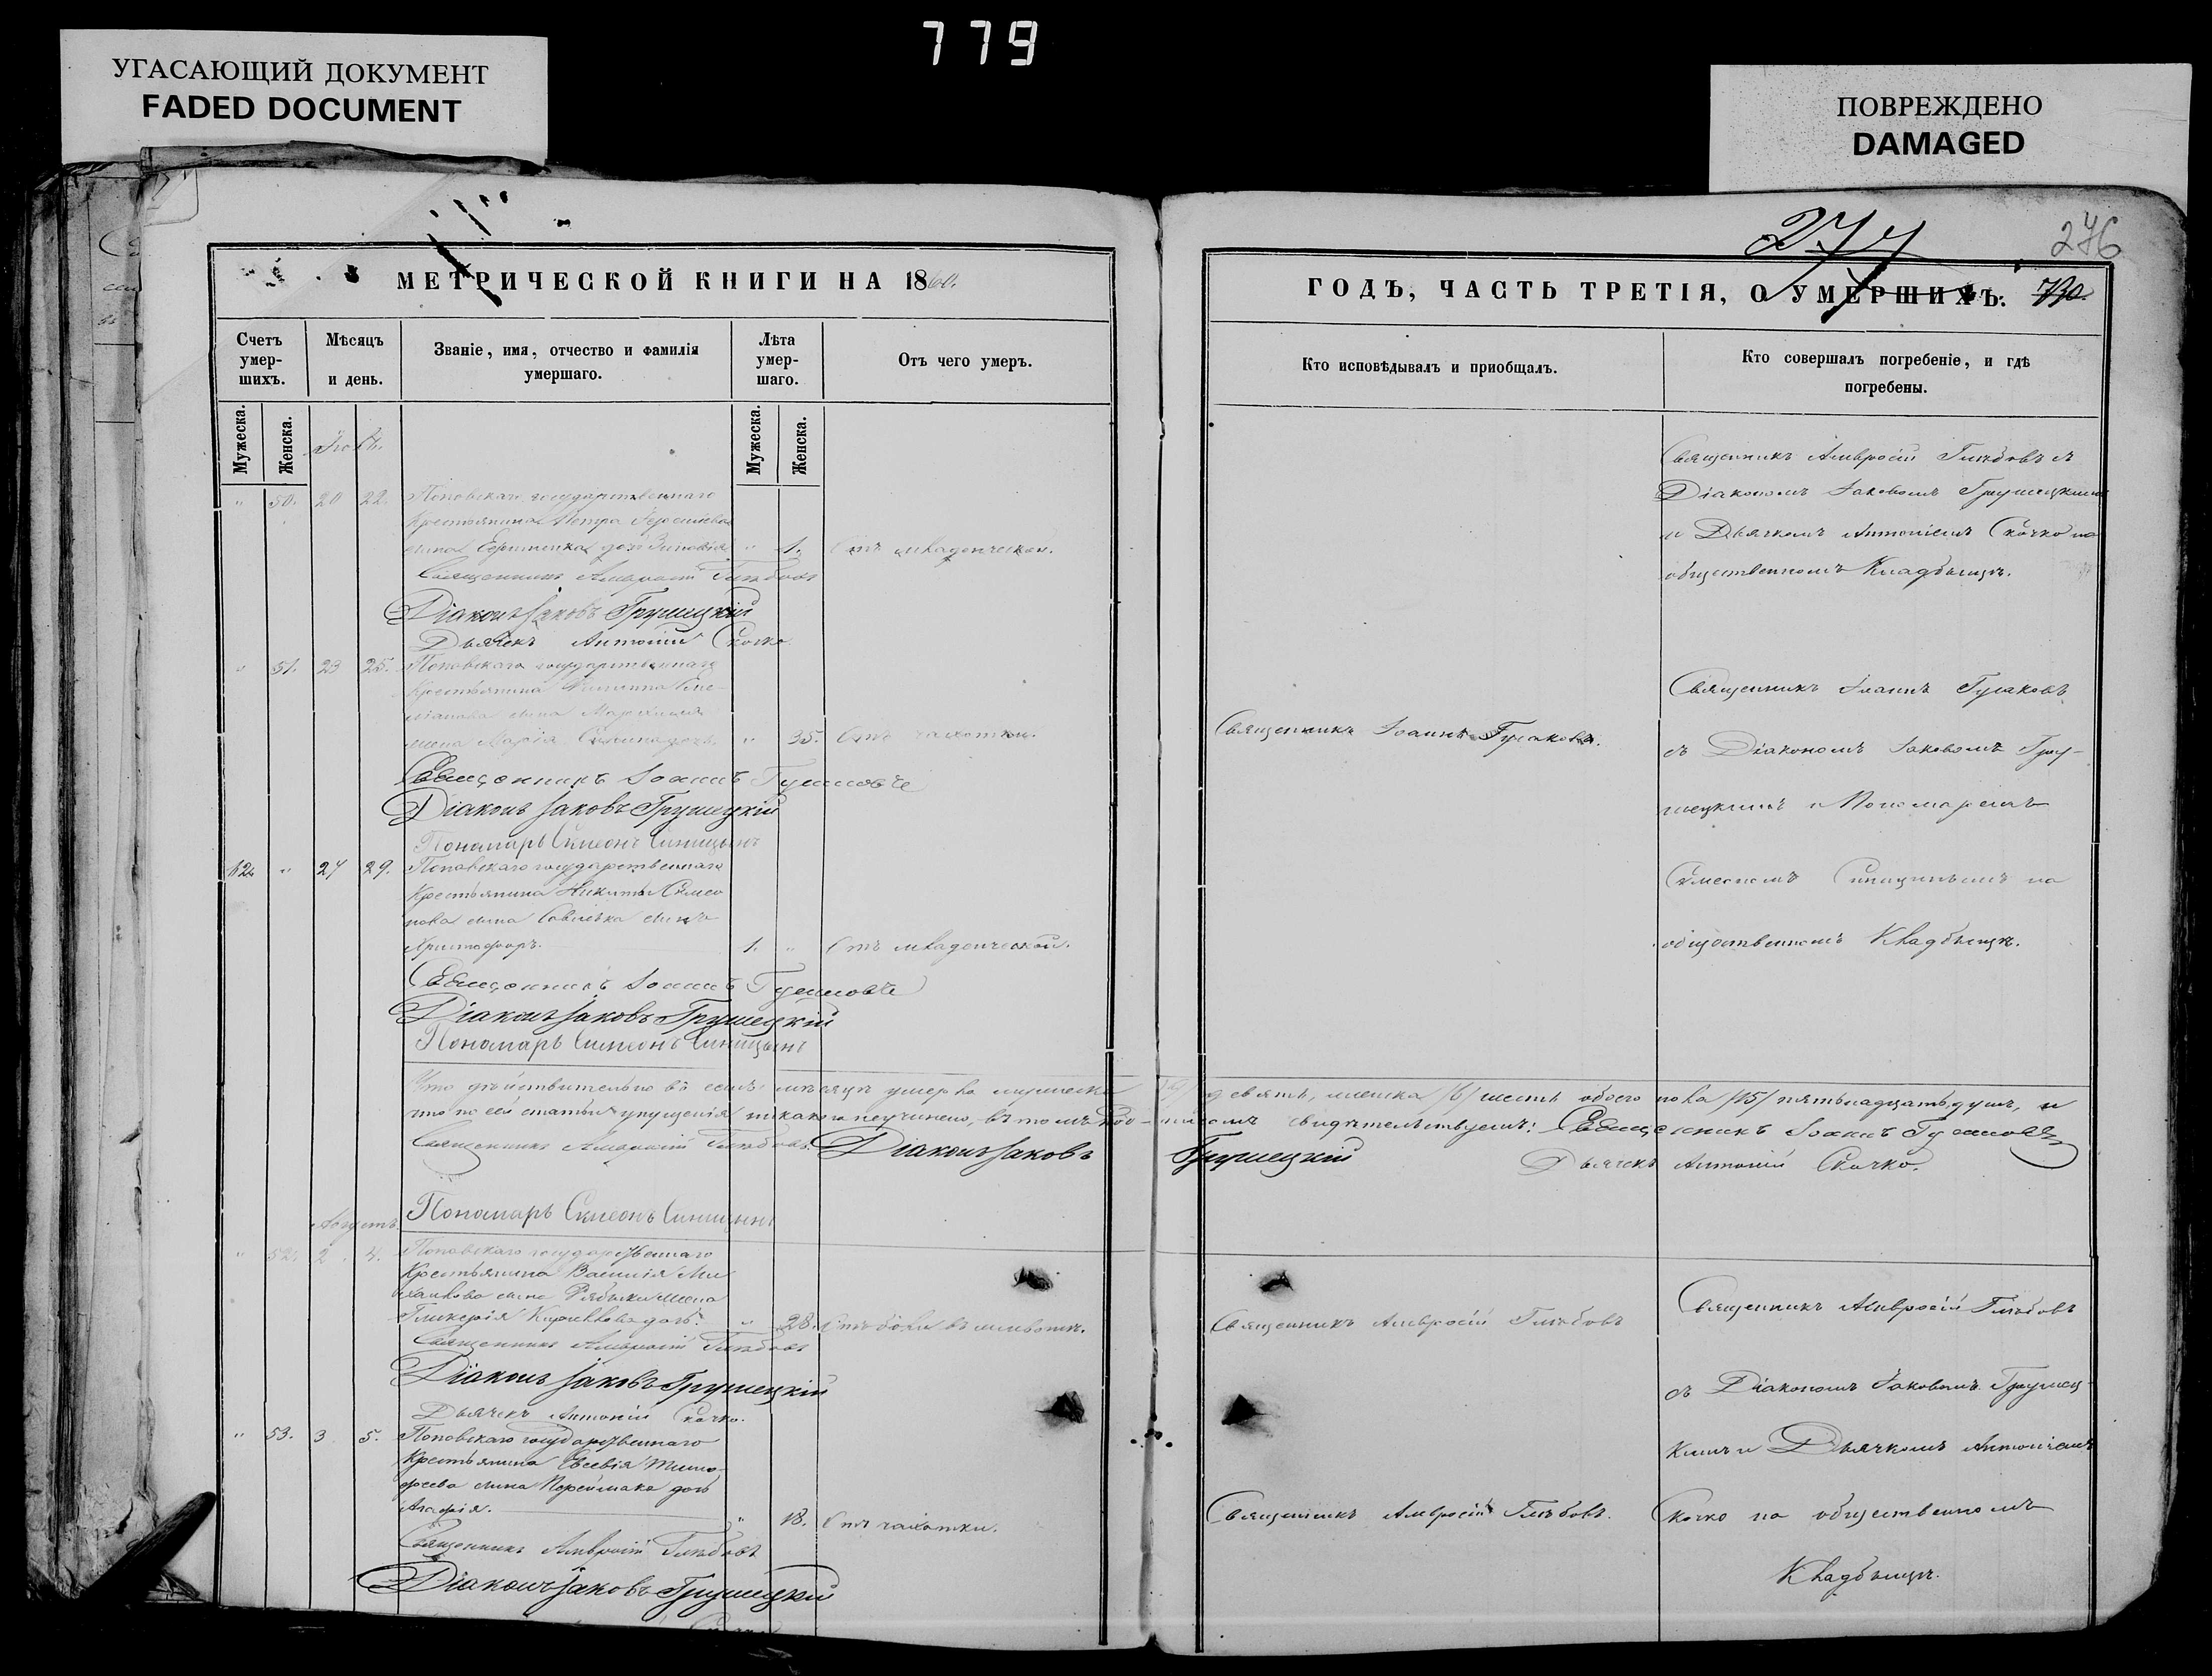 779
УГАСАЮЩИЙ ДОКУМЕНТ
FADED DOCUMENT
ПОВРЕЖДЕНО
DAMAGED
277
276
МЕТРИЧЕСКОЙ КНИГИ НА 1860.
ГОДЪ, ЧАСТЬ ТРЕТІЯ, О УМЕРШИХЪ. 730.
Счетъ умер-шихъ.
Мѣсяцъ и день.
Званіе, имя, отчество и фамилія умершаго.
Лѣта умер-шаго.
Отъ чего умеръ.
Кто исповѣдывалъ и приобщалъ.
Кто совершалъ погребеніе, и гдѣ погребены.
Мужеска.
Женска.
Мужеска.
Женска.
" 50. 20 22. Поповскаго государственнаго
Крестьянина Петра
сына дочь Зиновія " 1. Отъ младенческой.
Священникъ Амвросій Глѣбовъ
Діаконъ Іаковъ Грушецкій
Дьячекъ Антоній Скочко
Священникъ Амвросій Глѣбовъ съ
Діакономъ Іаковомъ Грушецкимъ
и Дьячкомъ Антоніемъ Скочко на
общественномъ Кладбищѣ.
" 51. 23 25. Поповскаго государственнаго
Крестьянина Филиппа Еме-
ліанова сына
жена Марія " 35. Отъ чахотки.
Священникъ Іоаннъ Гусаковъ
Діаконъ Іаковъ Грушецкій
Пономарь Симеонъ Синицынъ
Священникъ Іоаннъ Гусаковъ.
Священникъ Іоаннъ Гусаковъ
съ Діакономъ Іаковомъ Гру-
шецкимъ и Пономаремъ
Симеономъ Синицинымъ на
общественномъ Кладбищѣ.
82. " 27 29. Поповскаго государственнаго
Крестьянина Никиты Симео
нова сына Савельва сынъ
Христофоръ. 1. " Отъ младенческой.
Священникъ Іоаннъ Гусаковъ
Діаконъ Іаковъ Грушецкій
Пономарь Симеонъ Синицынъ
Что дѣйствительно въ семъ мѣсяцѣ умерло мужеска /9/ девять, женска /6/ шесть обоего пола /15/ пятьнадцать душъ, и
что по сей статьѣ упущенія никакого неучинено, въ томъ свидѣтельствуемъ: Священникъ Іоаннъ Гусаковъ
Священникъ Амвросій Глѣбовъ. Діаконъ Іаковъ Грушецкій Дьячекъ Антоній Скочко.
Пономарь Симеонъ Синицынъ
Августъ.
" 52. 2. 4. Поповскаго государственнаго
Крестьянина Василія Ми
хайлова сына Рябыки жена
Гликерія Кириллова дочь. " 28. Отъ боли въ животѣ.
Священникъ Амвросій Глѣбовъ
Діаконъ Іаковъ Грушецкій
Дьячекъ Антоній Скочко.
Священникъ Амвросій Глѣбовъ
Священникъ Амвросій Глѣбовъ
съ Діакономъ Іаковомъ Грушец-
кимъ и Дьячкомъ Антоніемъ
Скочко на общественномъ
Кладбищѣ.
" 53. 3 5. Поповскаго государственнаго
Крестьянина Евсевія Тимо-
феева сына дочь
Агафія. " 18. Отъ чахотки.
Священникъ Амвросій Глѣбовъ.
Священникъ Амвросій Глѣбовъ
Діаконъ Іаковъ Грушецкій